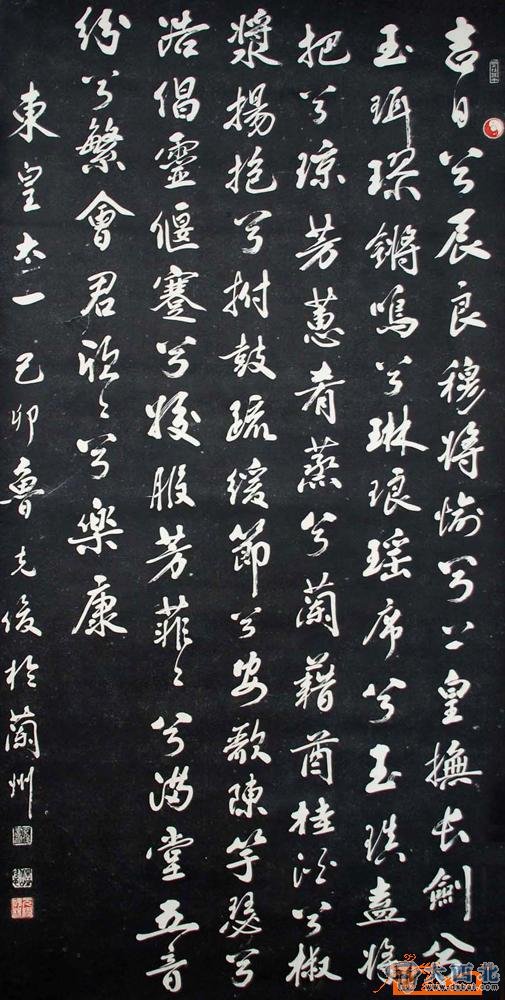 吉日兮辰良穆將愉兮上皇撫長劍兮
玉珥璆鏘鳴兮琳琅瑤席兮玉瑱盍將
把兮瓊芳蕙肴蒸兮蘭藉酋桂酒兮椒
漿揚抱兮拊鼓疏緩節兮安歌陳竽瑟兮
浩倡靈偃蹇兮姣服芳菲〻兮滿堂五音
紛兮繁會君欣〻兮樂康
東皇太一 己卯魯克俊於蘭州
大西北